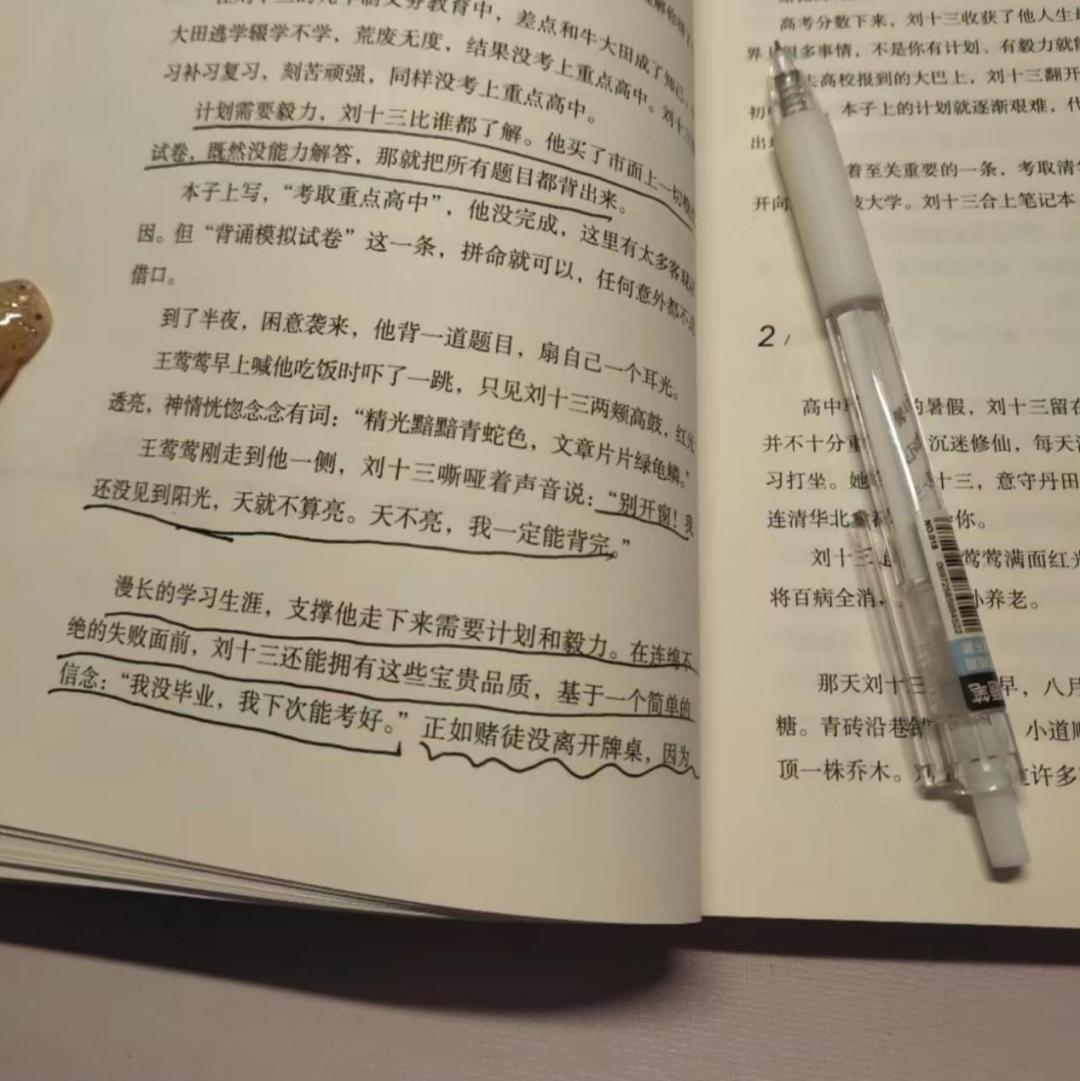 大田逃学辍学不学，荒废无度，结果没考上重点高中。刘十三
习补习复习，刻苦顽强，同样没考上重点高中。
计划需要毅力，刘十三比谁都了解。他买了市面上一切
试卷，既然没能力解答，那就把所有题目都背出来。
本子上写，“考取重点高中”，他没完成，这里有太多客观
因。但“背诵模拟试卷”这一条，拼命就可以，任何意外都不是
借口。
到了半夜，困意袭来，他背一道题目，扇自己一个耳光。
王莺莺早上喊他吃饭时吓了一跳，只见刘十三两颊高鼓，红光
透亮，神情恍惚念念有词：“精光黯黯青蛇色，文章片片绿龟鳞。”
王莺莺刚走到他一侧，刘十三嘶哑着声音说：“别开窗！我
还没见到阳光，天就不算亮。天不亮，我一定能背完。”
漫长的学习生涯，支撑他走下来需要计划和毅力。在连绵不
绝的失败面前，刘十三还能拥有这些宝贵品质，基于一个简单的
信念：“我没毕业，我下次能考好。”正如赌徒没离开牌桌，因为
高考分数下来，刘十三收获了他人生
界上很多事情，不是你有计划、有毅力就能
去高校报到的大巴上，刘十三翻开
初 本子上的计划就逐渐艰难，代
着至关重要的一条，考取清华
开向 大学。刘十三合上笔记本
2 /
高中 的暑假，刘十三留在
并不十分重 沉迷修仙，每天
习打坐。她 十三，意守丹田
连清华北 你。
刘十三 莺莺满面红光
将百病全消， 养老。
那天刘十三 早，八月
糖。青砖沿巷 小道
顶一株乔木。 许多
NO.018